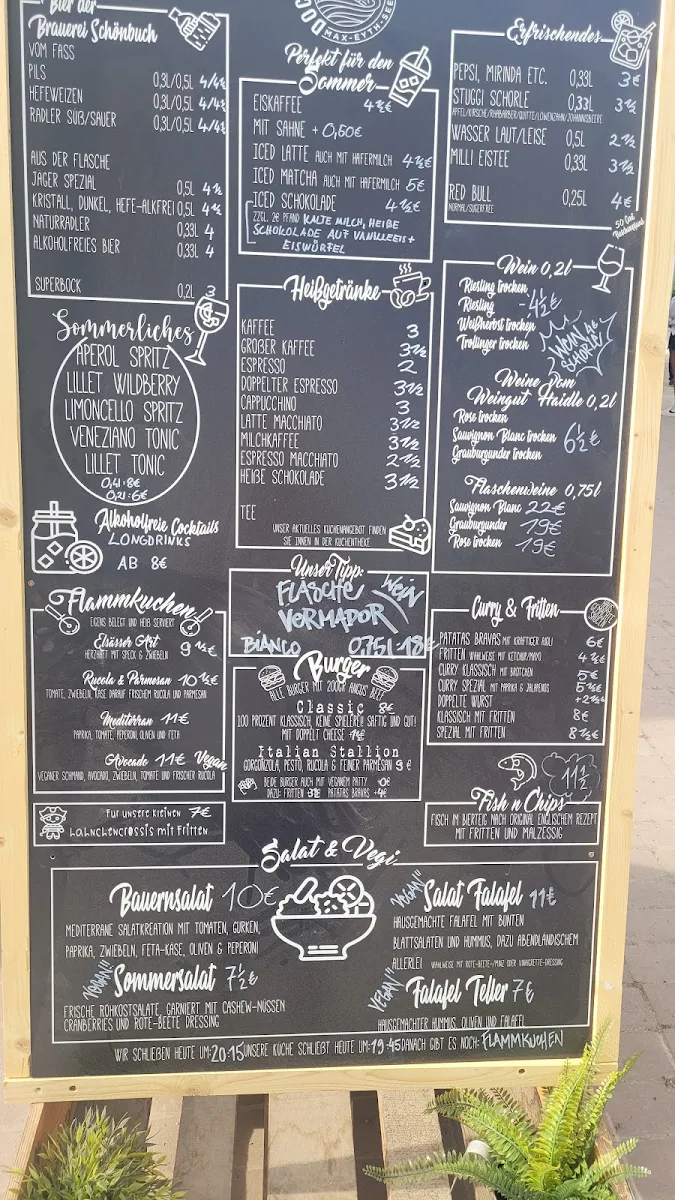 Bier der
Brauerei Schönbuch
VOM FASS
PILS 0,3L/0,5L 4/4½
HEFEWEIZEN 0,3L/0,5L 4/4½
RADLER SÜß/SAUER 0,3L/0,5L 4/4½
AUS DER FLASCHE
JÄGER SPEZIAL 0,5L 4½
KRISTALL, DUNKEL, HEFE-ALKFREI 0,5L 4½
NATURRADLER 0,33L 4
ALKOHOLFREIES BIER 0,33L 4
SUPERBOCK 0,2L 3
Sommerliches
APEROL SPRITZ
LILLET WILDBERRY
LIMONCELLO SPRITZ
VENEZIANO TONIC
LILLET TONIC
0,4l: 8€
0,2l: 6€
Alkoholfreie Cocktails
LONGDRINKS
AB 8€
Flammkuchen
EIGENS BELEGT UND HEIß SERVIERT
Elsässer Art 9½€
HERZHAFT MIT SPECK & ZWIEBELN
Rucola & Parmesan 10½€
TOMATE, ZWIEBELN, KÄSE DARAUF FRISCHEM RUCOLA UND PARMESAN
Mediterran 11€
PAPRIKA, TOMATE, PEPERONI, OLIVEN UND FETA
Avocado 11€ Vegan
VEGANER SCHMAND, AVOCADO, ZWIEBELN, TOMATE UND FRISCHER RUCOLA
Für unsere kleinen 7€
Hähnchencrossis mit Fritten
DOC
MAX-EYTH-SEE
Perfekt für den
Sommer
EISKAFFEE 4½€
MIT SAHNE + 0,60€
ICED LATTE AUCH MIT HAFERMILCH 4½€
ICED MATCHA AUCH MIT HAFERMILCH 5€
ICED SCHOKOLADE 4½€
ZZGL. 2€ PFAND KALTE MILCH, HEIßE
SCHOKOLADE AUF VANILLEEIS+
EISWÜRFEL
Heißgetränke
KAFFEE 3
GROßER KAFFEE 3½
ESPRESSO 2
DOPPELTER ESPRESSO 3½
CAPPUCCHINO 3
LATTE MACCHIATO 3½
MILCHKAFFEE 3½
ESPRESSO MACCHIATO 2½
HEIßE SCHOKOLADE 3½
TEE
UNSER AKTUELLES KUCHENANGEBOT FINDEN
SIE INNEN IN DER KUCHENTHEKE
Unser Tipp:
FLASCHE WEIN
VORMADOR
BIANCO 0,75l 18€
Burger
ALLE BURGER MIT 200GR ANGUS BEEF
Classic 8€
100 PROZENT KLASSISCH, KEINE SPIELEREI! SAFTIG UND GUT!
MIT DOPPELT CHEESE 1½€
Italian Stallion
GORGONZOLA, PESTO, RUCOLA & FEINER PARMESAN 9€
BEIDE BURGER AUCH MIT VEGANEM PATTY +0€
DAZU: FRITTEN 3½€ PATATAS BRAVAS +4€
Erfrischendes
PEPSI, MIRINDA ETC. 0,33L 3€
STUGGI SCHORLE 0,33L 3½
APFEL/KIRSCHE/RHABARBER/QUITTE/LÖWENZAHN/JOHANNISBEERE
WASSER LAUT/LEISE 0,5L 2½
MILLI EISTEE 0,33L 3½
RED BULL 0,25L 4€
NORMAL/SUGERFREE
50 Cent
Wein 0,2l
Riesling trocken
Riesling - 4½€
Weißherbst trocken
Trollinger trocken
WEIN ALS
SCHORLE!
Weine vom
Weingut Haidle 0,2l
Rose trocken
Sauvignon Blanc trocken 6½€
Grauburgunder trocken
Flaschenweine 0,75l
Sauvignon Blanc 22€
Grauburgunder 19€
Rose trocken 19€
Curry & Fritten
PATATAS BRAVAS MIT KRÄFTIGER AIOLI 6€
FRITTEN WAHLWEISE MIT KETCHUP/MAYO 4½€
CURRY KLASSISCH MIT BRÖTCHEN 5€
CURRY SPEZIAL MIT PAPRIKA & JALAPENOS 5½€
DOPPELTE WURST +2½€
KLASSISCH MIT FRITTEN 8€
SPEZIAL MIT FRITTEN 8½€
11½
Fish n Chips
FISCH IM BIERTEIG NACH ORIGINAL ENGLISCHEM REZEPT
MIT FRITTEN UND MALZESSIG
Salat & Vegi
Bauernsalat 10€
MEDITERRANE SALATKREATION MIT TOMATEN, GURKEN,
PAPRIKA, ZWIEBELN, FETA-KÄSE, OLIVEN & PEPERONI
VEGAN!!
Sommersalat 7½€
FRISCHE ROHKOSTSALATE, GARNIERT MIT CASHEW-NÜSSEN
CRANBERRIES UND ROTE-BEETE DRESSING
VEGAN!!
Salat Falafel 11€
HAUSGEMACHTE FALAFEL MIT BUNTEN
BLATTSALATEN UND HUMMUS, DAZU ABENDLÄNDISCHEM
ALLERLEI WAHLWEISE MIT ROTE-BEETE-/MINZ ODER VINAIGRETTE-DRESSING
VEGAN!!
Falafel Teller 7€
HAUSGEMACHTER HUMMUS, OLIVEN UND FALAFEL
WIR SCHLIEßEN HEUTE UM: 20:15 UNSERE KÜCHE SCHLIEßT HEUTE UM: 19:45 DANACH GIBT ES NOCH: FLAMMKUCHEN